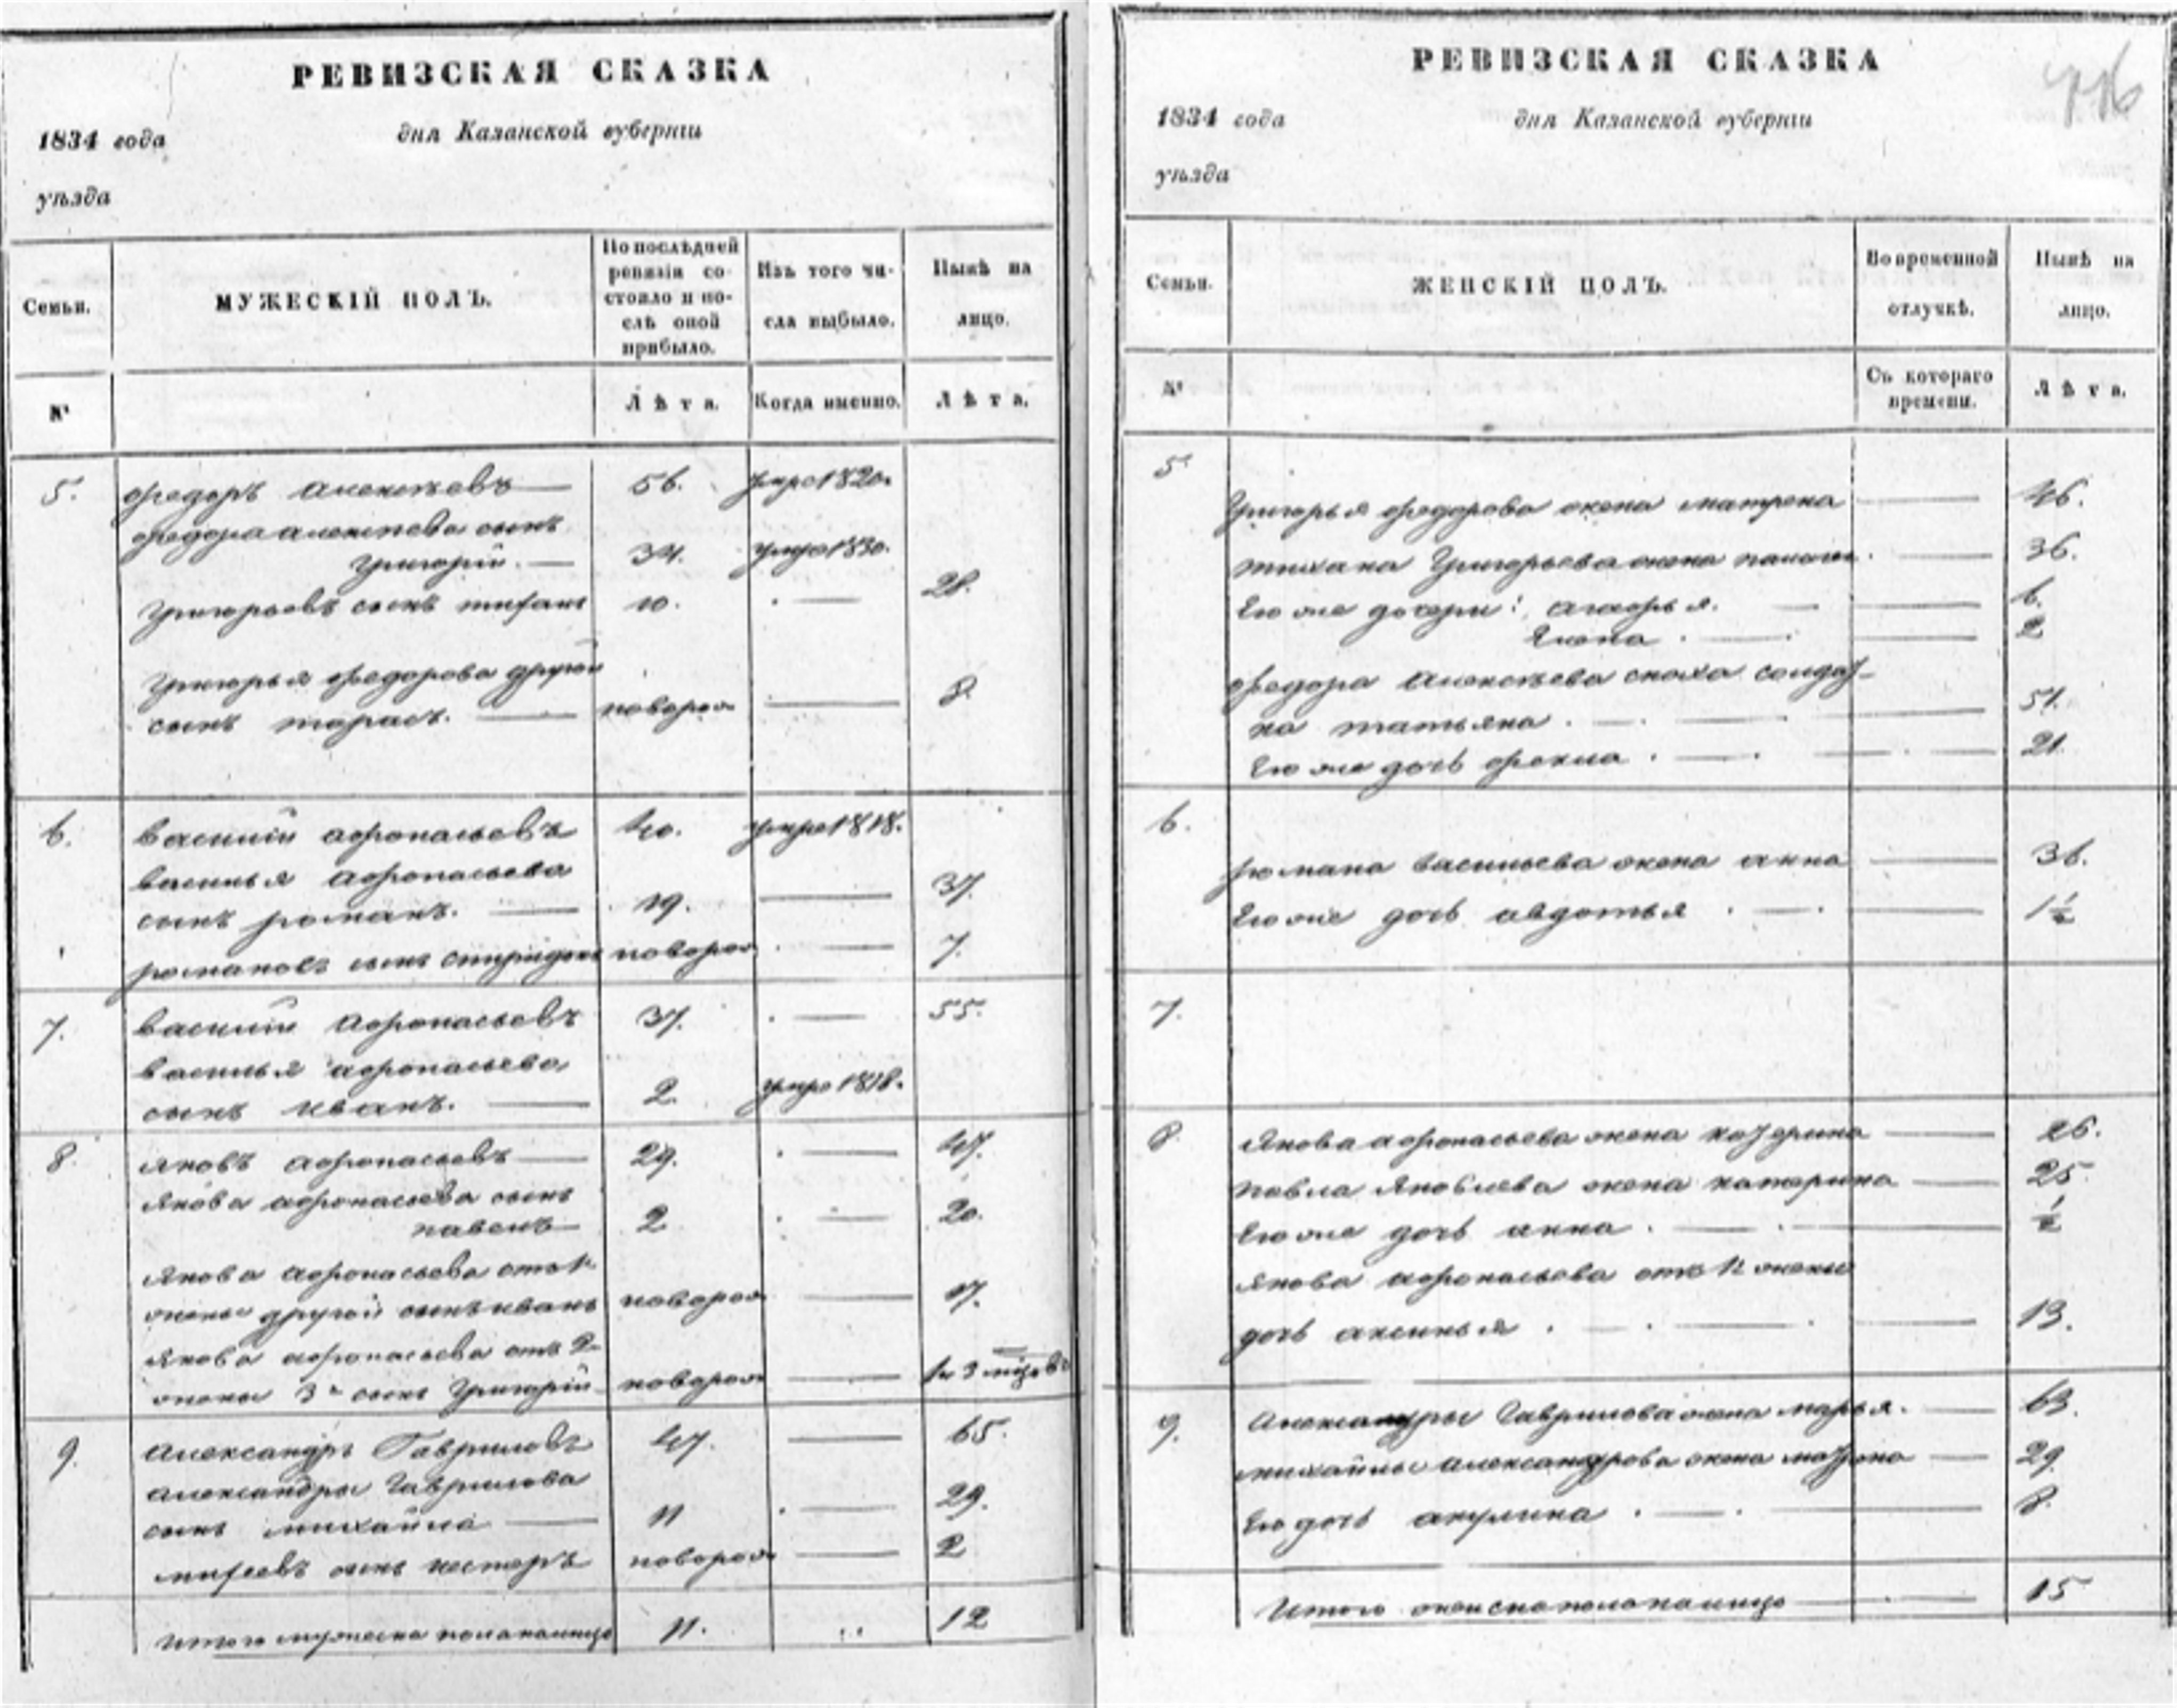 РЕВИЗСКАЯ СКАЗКА
1834 года
дня Казанской губерніи
уѣзда
Семьи.
МУЖЕСКІЙ ПОЛЪ.
По послѣдней
ревизіи со-
стояло и по-
слѣ оной
прибыло.
Изъ того чи-
сла выбыло.
Нынѣ на
лицо.
№
Лѣта.
Когда именно.
Лѣта.
5. Федоръ Алексѣевъ 56. умре 1820.
Федора Алексѣева сынъ
Григорій. 34. умре 1830.
Григорьевъ сынъ 10. 28.
Григорья Федорова другой
сынъ Тарасъ. новорож 8.
6. Василіи Афонасьевъ 40. умре 1818.
Василья Афонасьева
сынъ Романъ. 19. 37.
Романовъ сынъ Спиридонъ новорож 7.
7. Василіи Афонасьевъ 37. 55.
Василья Афонасьева
сынъ Иванъ. 2. умре 1818.
8. Яковъ Афонасьевъ 29. 47.
Якова Афонасьева сынъ
Павелъ 2 20.
Якова Афонасьева отъ 1й
жены другой сынъ Иванъ новорож 17.
Якова Афонасьева отъ 2й
жены 3й сынъ Григорій новорож
9. Александръ Гавриловъ 47. 65.
Александры Гаврилова
сынъ Михайла 11 29.
сынъ Несторъ новорож 2
Итого мужеска пола налицо 11. 12
РЕВИЗСКАЯ СКАЗКА
1834 года
дня Казанской губерніи
уѣзда
Семьи.
ЖЕНСКІЙ ПОЛЪ.
Во временной
отлучкѣ.
Нынѣ на
лицо.
№
Съ котораго
времени.
Лѣта.
5
Григорья Федорова жена Матрена 46.
Григорьева жена 36.
Его же дочери: 6.
Елена. 2
Федора Алексѣева сноха солдат-
ка Татьяна. 51.
Ею же дочь Фекла. 21.
6.
Романа Васильева жена Анна 36.
Его же дочь Авдотья. 1½
7.
8 Якова Афонасьева жена 26.
Павла Яковлева жена Катерина 25
Его же дочь Анна. ½
Якова Афонасьева отъ 1й жены
дочь Аксинья. 13.
9. Александры Гаврилова жена Марья. 63.
Михайлы Александрова жена Матрена 29
Его дочь Акулина. 8.
Итого женска пола налицо 15